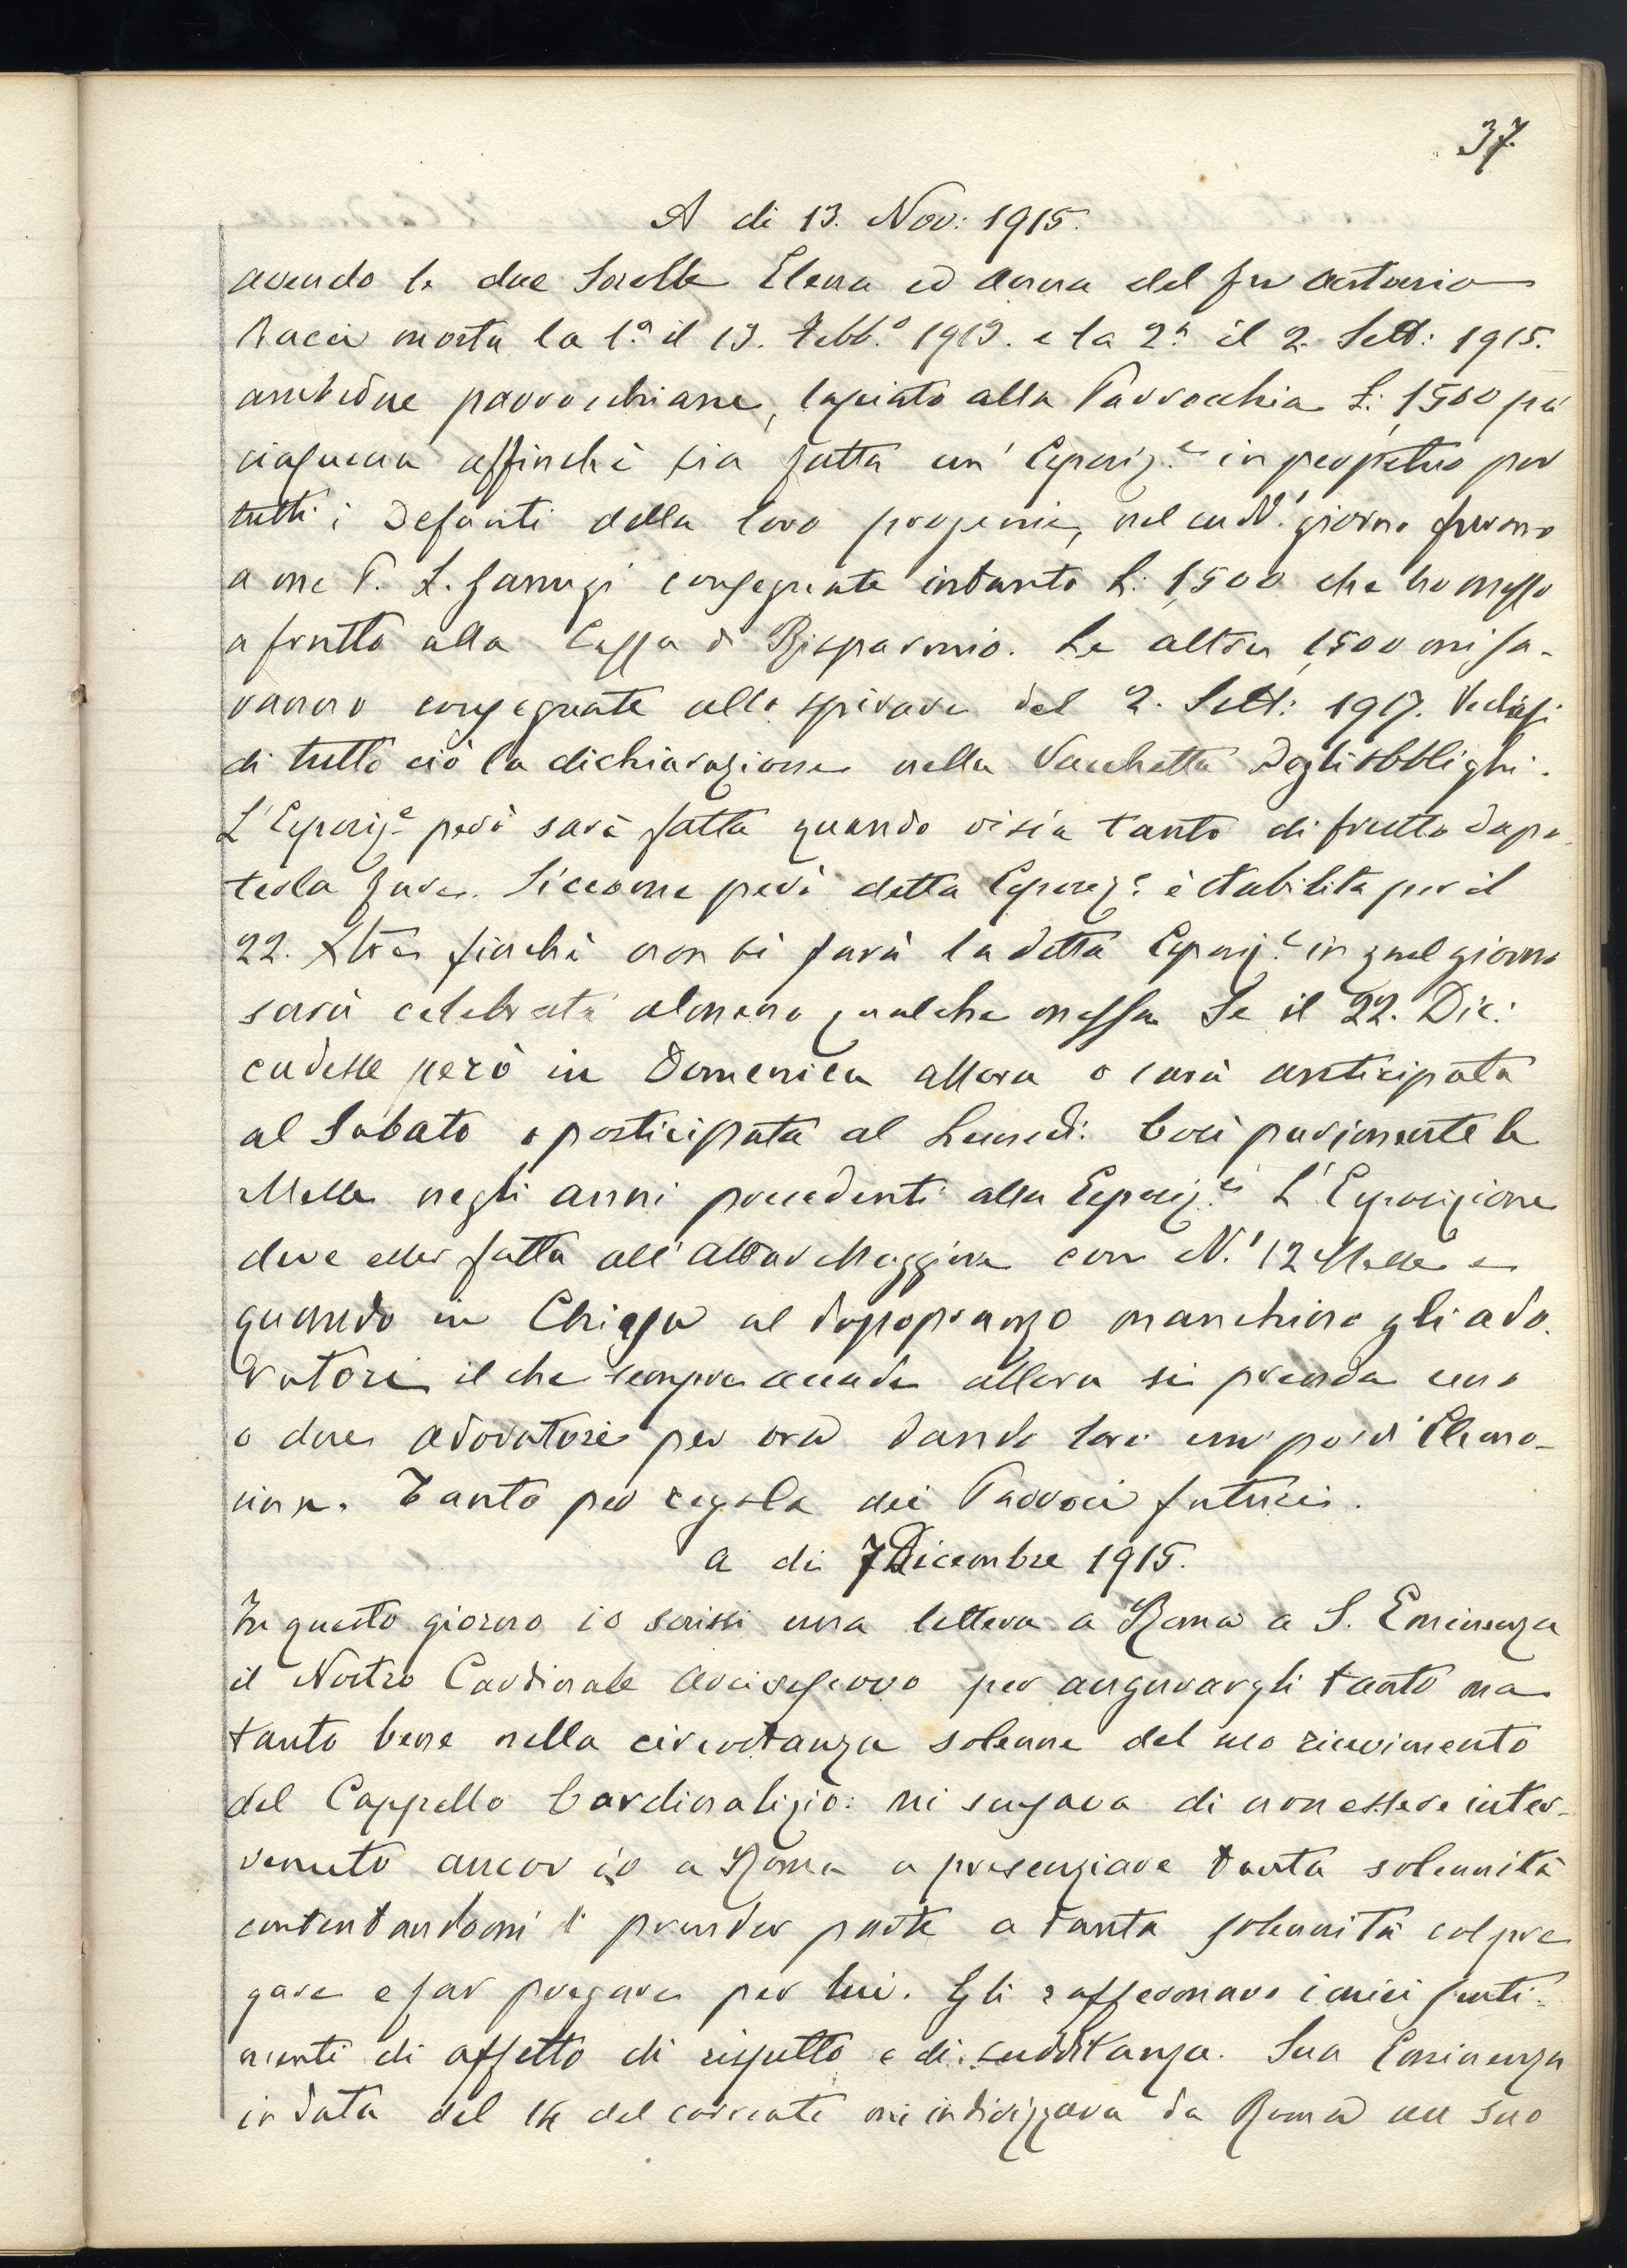 37.
A di 13. Nov: 1915.
avendo le due Sorelle Elena ed Anna del fu Antonio
Bacci morta la 1ª il 13. Febb.º 1913. e la 2ª il 2. Sett: 1915.
ambedue parrocchiane, lasciato alla Parrocchia L: 1,500 per
ciascuna affinchè sia fatta un' Esposiz.e in perpetuo per
tutti i Defunti della loro progenie, nel sudd.' giorno furono
a me P. L. consegnate intanto L: 1,500 che ho messo
a frutto alla Cassa di Risparmio. Le altre 1,500 mi sa-
ranno consegnate allo spirare del 2. Sett: 1917. Vedasi
di tutto ciò la dichiarazione nella Vacchetta degli Obblighi.
L'Esposiz.e però sarà fatta quando vi sia tanto di frutto da po-
terla fare. Siccome però detta Esposiz.e è stabilita per il
22. Xbre finchè non si farà la detta Esposiz.e in quel giorno
sarà celebrata almeno qualche messa. Se il 22. Dic:
cadesse però in Domenica allora o sarà anticipata
al Sabato o posticipata al Lunedì. Così parimente le
Messe negli anni precedenti alla Esposiz.e L'Esposizione
deve esser fatta all'Altar Maggiore con N.' 12 Messe e
quando in Chiesa al dopopranzo manchino gli ado-
ratori il che sempre accade allora si prenda uno
o due adoratori per ora dando loro un po' di Elemo-
sina. Tanto per regola dei Parroci futuri.
a di 7 Dicembre 1915.
In questo giorno io scrissi una lettera a Roma a S. Eminenza
il Nostro Cardinale Arcivescovo per augurargli tanto ma
tanto bene nella circostanza solenne del suo ricevimento
del Cappello Cardinalizio: mi scusava di non essere inter-
venuto ancor io a Roma a presenziare tanta solennità
contentandomi di prender parte a tanta solennità col pre
gare e far pregare per lui. Gli raffermavo i miei senti-
menti di affetto di rispetto e di sudditanza. Sua Eminenza
in data del 14 del corrente mi indirizzava da Roma un suo